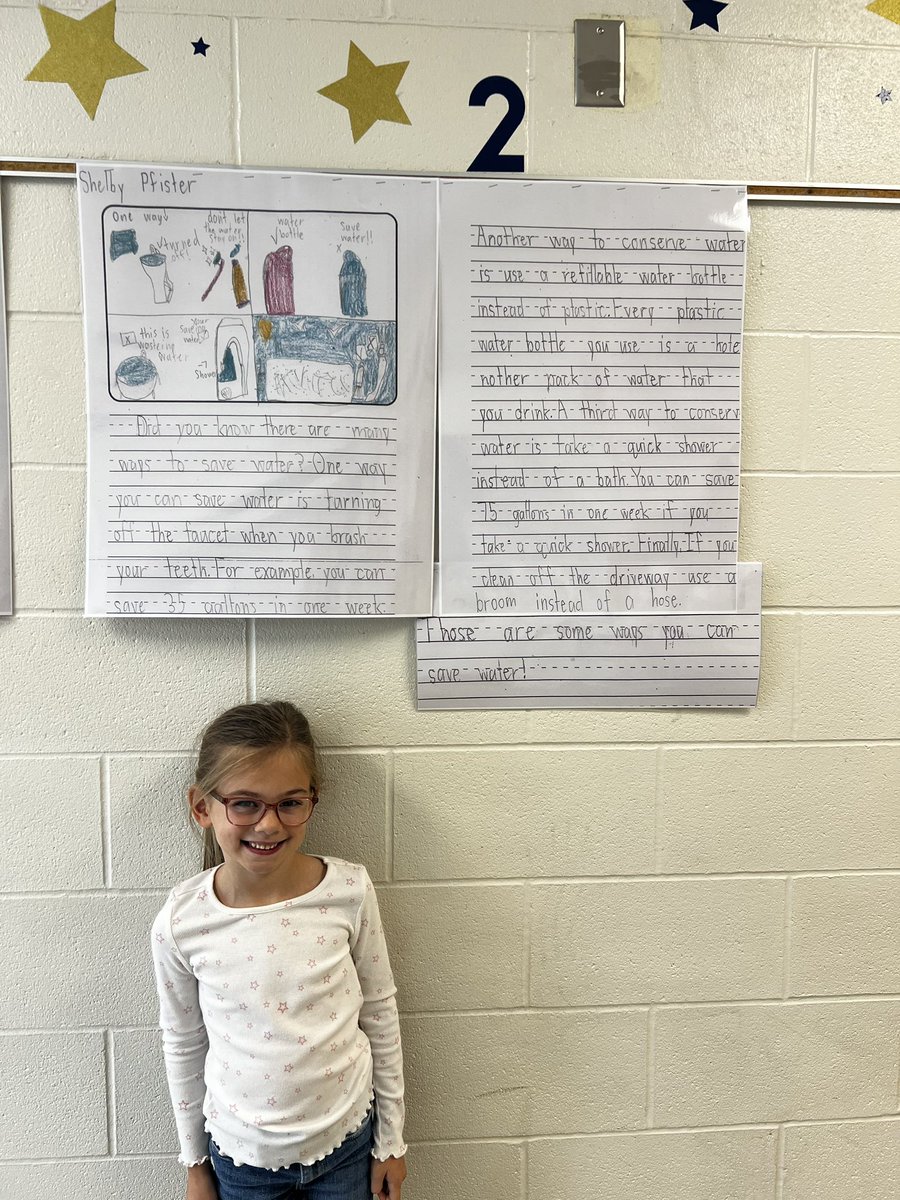 2
Shelby Pfister
One way
turned
off!
dont let
the water
stay on!!
water
bottle
save
water!!
x
x
this is
wastering
water
your
saveing
water
Shower
Did you know there are many
ways to save water? One way
you can save water is turning
off the faucet when you brush
your teeth. For example, you can
save 35 gallons in one week.
Another way to conserve water
is use a refillable water bottle
instead of plastic. Every plastic
water bottle you use is a hole
nother pack of water that
you drink. A third way to conserv
water is take a quick shower
instead of a bath. You can save
75 gallons in one week if you
take a quick shower. Finally. If you
clean off the driveway use a
broom instead of a hose.
Those are some ways you can
save water!